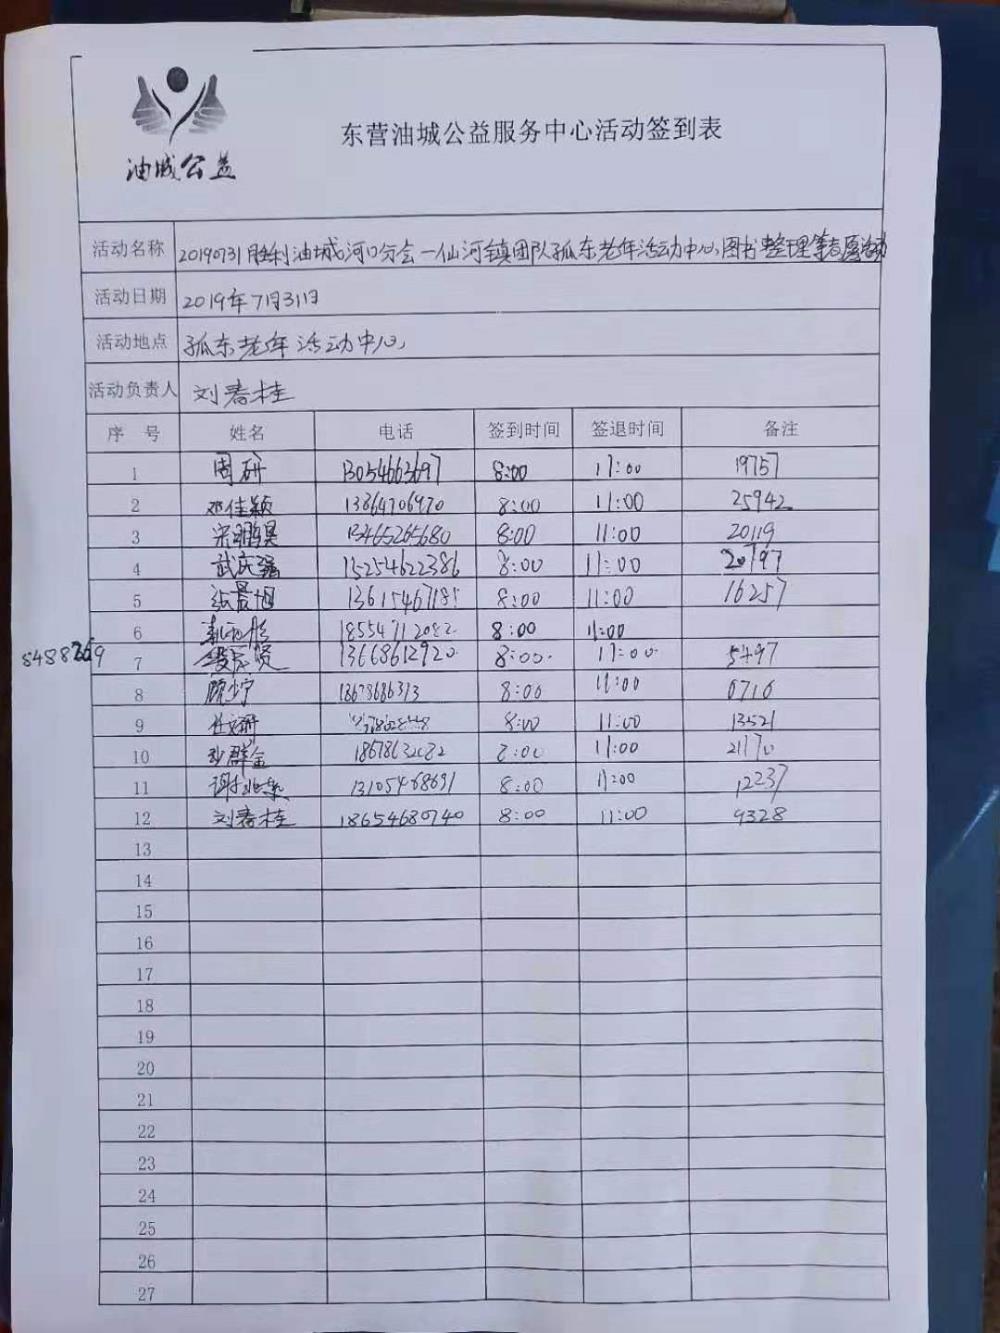 油城公益
东营油城公益服务中心活动签到表
活动名称 20190731胜利油城河口分会—仙河镇团队孤东老年活动中心图书整理等志愿活动
活动日期 2019年7月31日
活动地点 孤东老年活动中心
活动负责人 刘春桂
序 号 姓名 电话 签到时间 签退时间 备注
1 周研 13054663697 8:00 11:00 19757
2 邓佳颖 13864706970 8:00 11:00 25942
3 宋鹏昊 13465265680 8:00 11:00 20119
4 武庆强 15254622386 8:00 11:00 20797
5 张晨旭 8:00 11:00 16257
6 8:00 11:00
8488269 7 13668612920 8:00 11:00 5497
8 顾少宁 18678686313 8:00 11:00 6716
9 8:00 11:00 13521
10 18678632682 8:00 11:00 21170
11 13105468691 8:00 11:00 12237
12 刘春桂 18654680740 8:00 11:00 9328
13
14
15
16
17
18
19
20
21
22
23
24
25
26
27